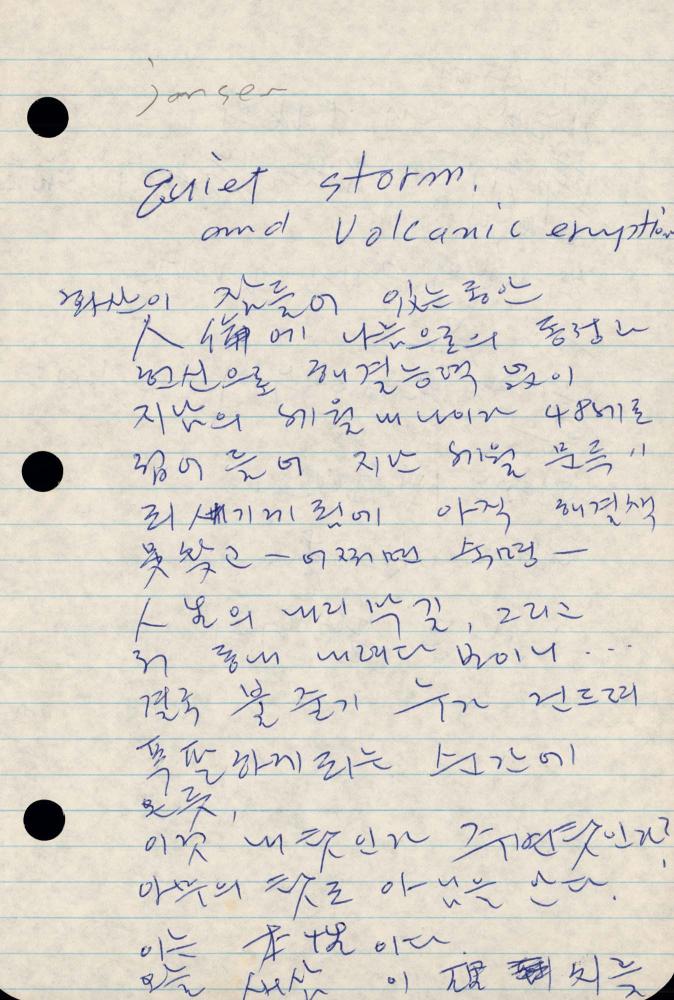 Jansen
Quiet storm.
and Volcanic eruption
화산이 잠들어 있는 동안
人 에 나름으로의 동정과
헌신으로 해결능력 없이
지남의 세월 내 나이가 48세로
접어 들어 지난 세월 문득"
되 새기게 됨에 아직 해결책
못찾고 — 어쩌면 숙명 —
人生의 내리막 길, 그리고
뒤 내려다 보이니 ...
결국 불 줄기 누가 건드려
폭팔하게 되는 순간에
오듯,
이것 내 탓인가 주변탓인가?
아무의 탓도 아님을 안다.
이는 本性이다.
오늘 새삼 이 치를